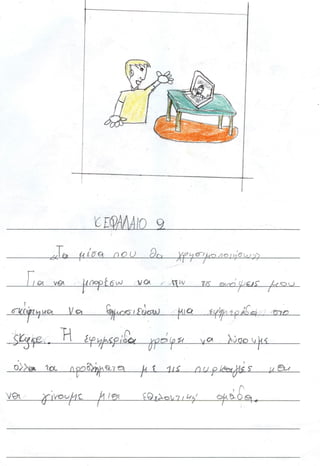 ΚΕΦΑΛΑΙΟ 2
«Τα μέσα που θα χρησιμοποιήσω»
Για να μπορέσω να πω τις απόψεις μου
σκέφτηκα να δημοσιεύσω μια εφημερίδα στο
Η εφημερίδα γράφει να λύσουμε
όλοι τα προβλήματα με τις πυρκαγιές και
να γίνουμε μια εθελοντική ομάδα.